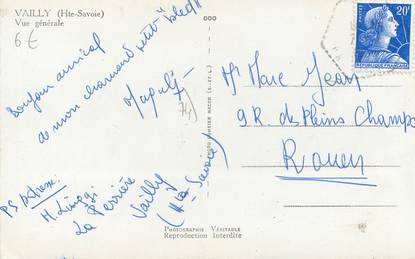 VAILLY (Hte-Savoie)
Vue générale
6 €
Bonjour amical
de mon charmant petit "bled"
74
PS Adresse:
La Perrière
Vailly
(Hte-Savoie)
PHOTOGRAPHIE VÉRITABLE
Reproduction Interdite
POSTES
20F
REPUBLIQUE FRANÇAISE
Mr Marc Jean
9 R. des Pleins Champs
Rouen